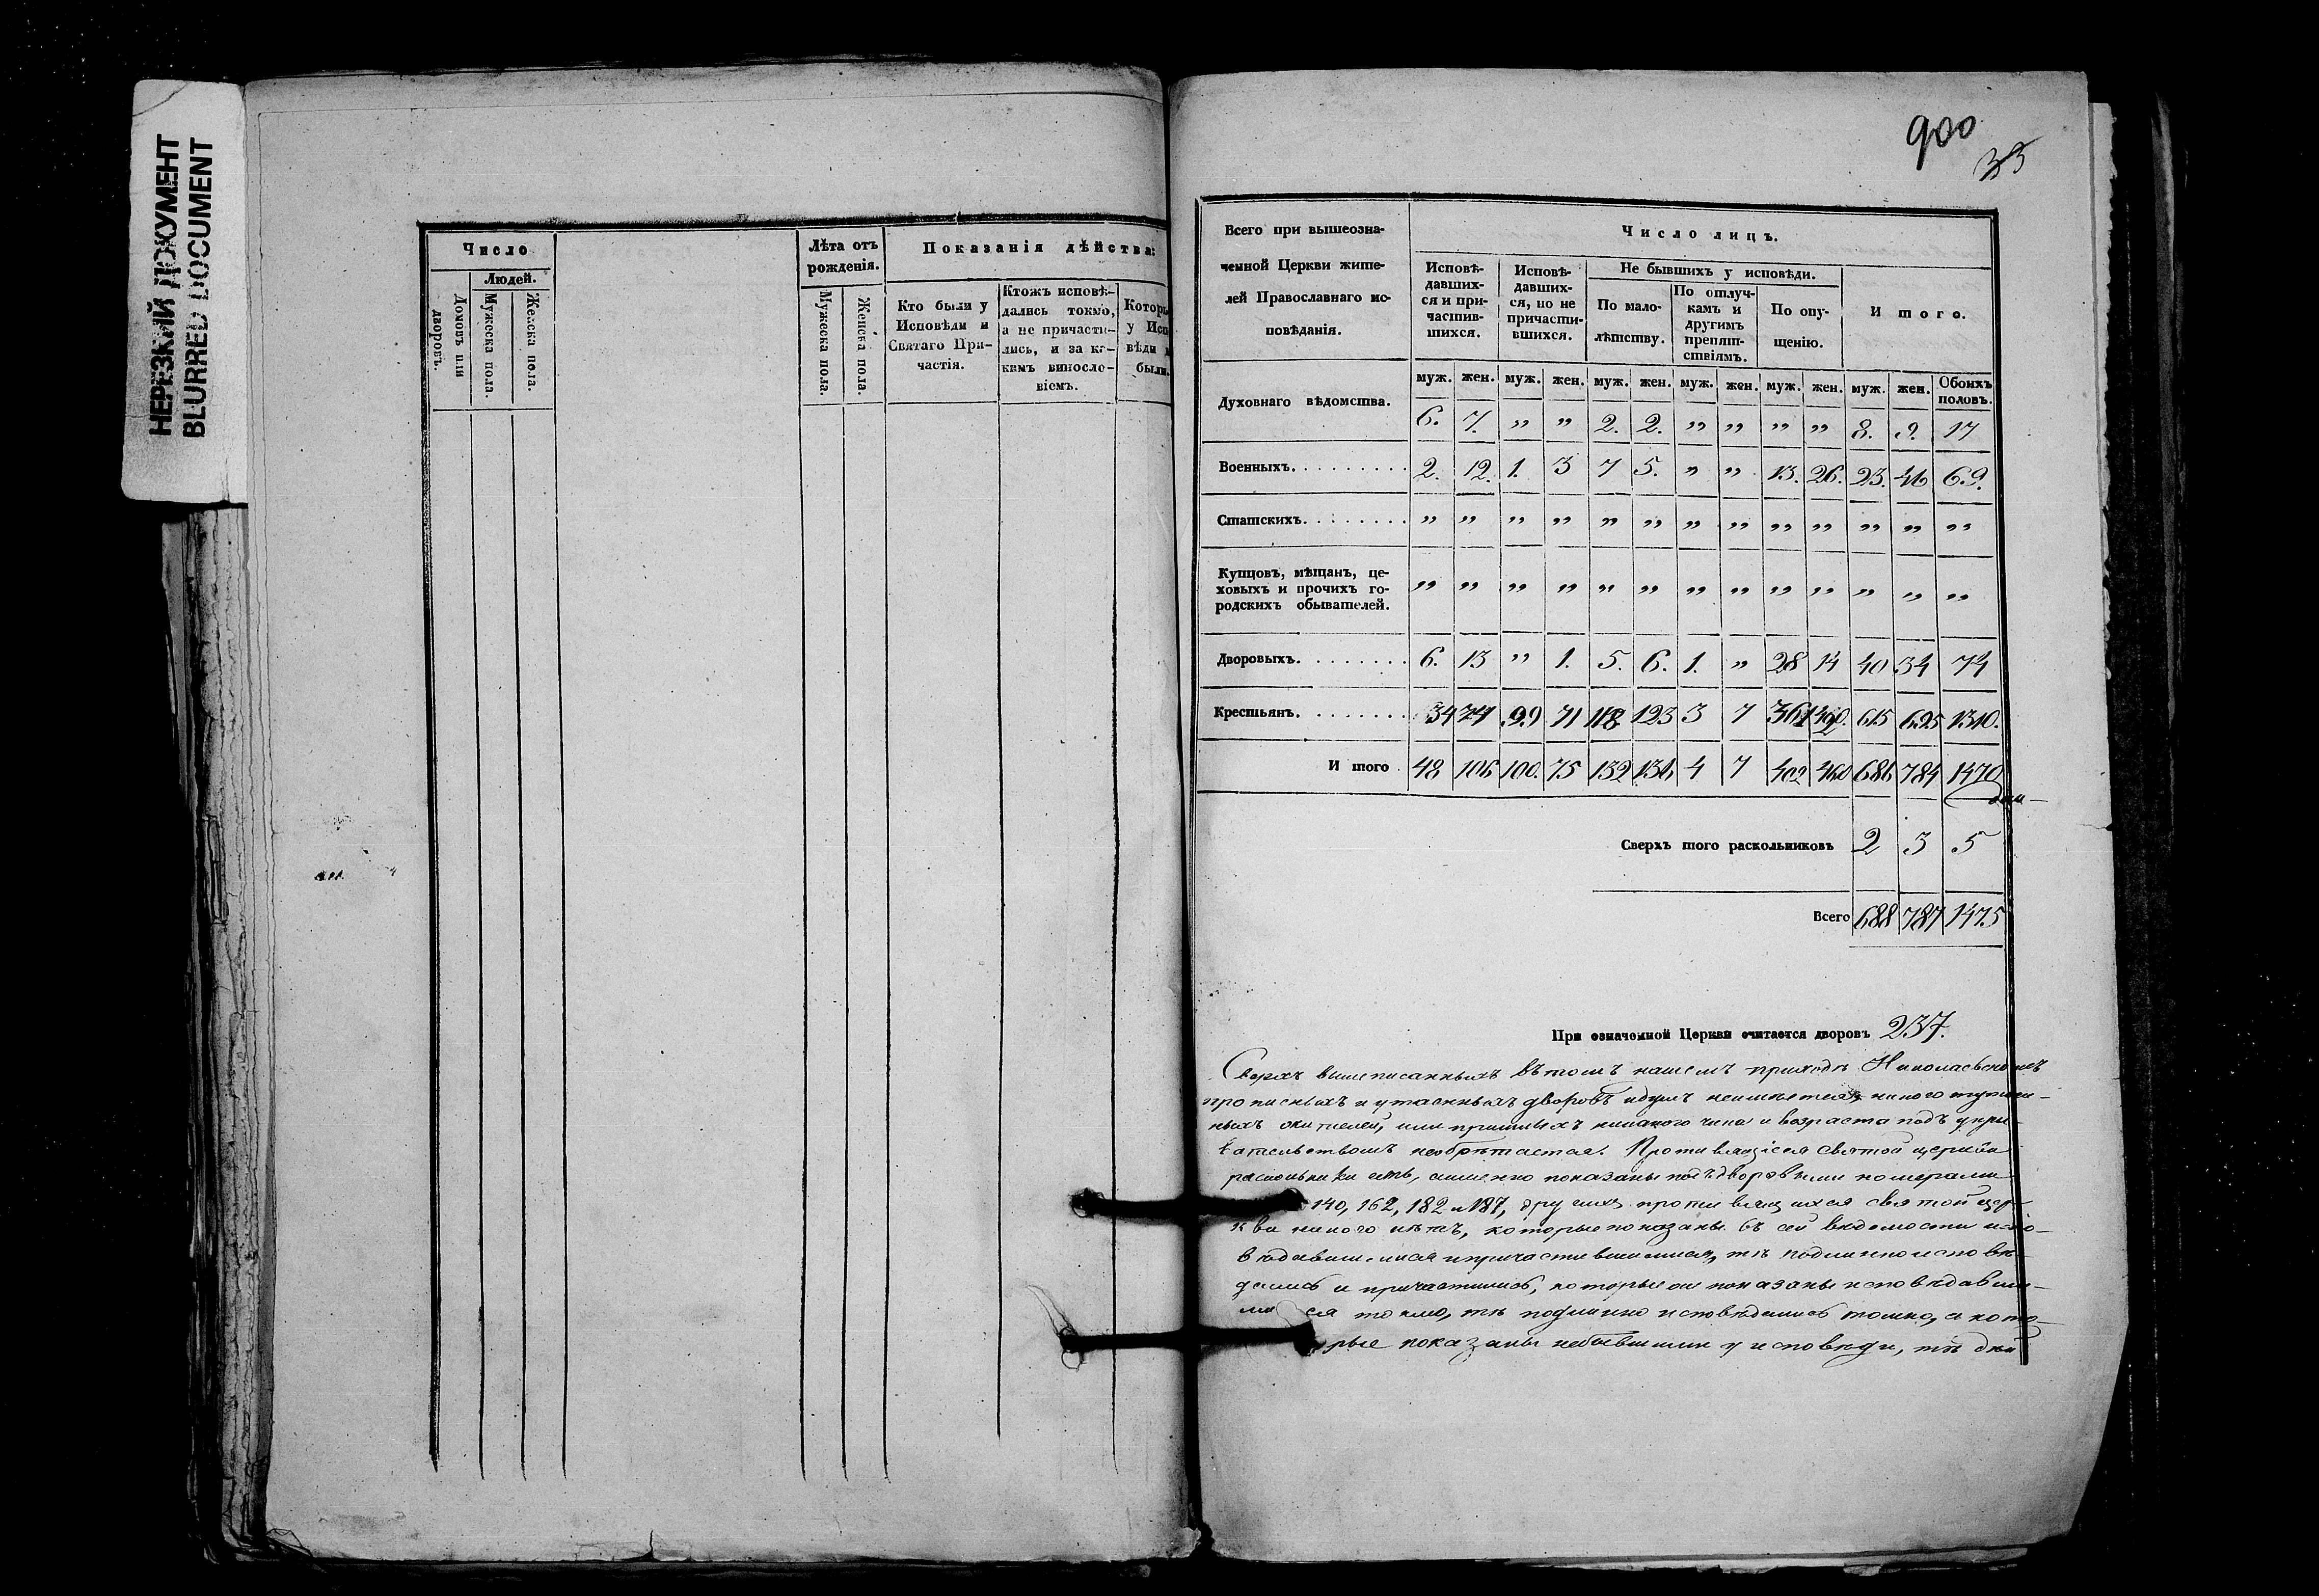 НЕРЕЗКИЙ ДОКУМЕНТ
BLURRED DOCUMENT
Число
Людей.
Домовъ или дворовъ.
Мужеска пола.
Женска пола.
Лѣта отъ
рожденія.
Мужеска пола.
Женска пола.
Показанія дѣйства:
Кто были у
Исповѣди и
Святаго При-
частія.
Ктожъ исповѣ-
дались токмо,
а не причасти-
лись, и за ка-
кимъ винosло-
віемъ.
Которы
у Исп
вѣди н
были.
900
33
Всего при вышеозна-
ченной Церкви жите-
лей Православнаго ис-
повѣданія.
Число лицъ.
Исповѣ-
давших-
ся и при-
частив-
шихся.
Исповѣ-
давших-
ся, но не
причасти-
вшихся.
Не бывшихъ у исповѣди.
По мало-
лѣтству.
По отлуч-
камъ и
другимъ
препят-
ствіямъ.
По опу-
щенію.
И того.
муж. жен. муж. жен. муж. жен. муж. жен. муж. жен. муж. жен. Обоихъ половъ.
Духовнаго вѣдомства. 6. 7. „ „ 2. 2. „ „ „ „ 8. 9. 17
Военныхъ. 2. 12. 1. 3 7 5. „ „ 13. 26. 23. 46 69.
Статскихъ. „ „ „ „ „ „ „ „ „ „ „ „ „
Купцовъ, мѣщанъ, це-
ховыхъ и прочихъ го-
родскихъ обывателей. „ „ „ „ „ „ „ „ „ „ „ „ „
Дворовыхъ. 6. 13 „ 1. 5. 6. 1. „ 28 14 40 34 74
Крестьянъ. 34 74 99 71 118 123 3 7 361 420. 615 695 1310.
И того 48 106 100. 75 132 136 4 7 402 460 686 784 1470
Сверхъ того раскольниковъ 2 3 5
Всего 688 787 1475
При означенной Церкви считается дворовъ 237.
Сверхъ вышеписанныхъ въ томъ нашемъ приходѣ Николаевскомъ
прописныхъ и утаенныхъ дворовъ и душъ неимѣется никого
жителей, или пришлыхъ никакого чина и возраста подъ укры-
вательствомъ необрѣтается. Противящіеся святой церкви
раскольники есть, именно показаны подъ дворовыми номерами
140, 162, 182 и 187, другихъ противящихся святой цер-
кви никого нѣтъ, которые показаны въ сей вѣдомости испо-
вѣдавшимися и причастившимися, тѣ подлинно исповѣ-
дались и причастились, которые показаны исповѣдавши-
мися токмо, тѣ подлинно исповѣдались токмо, а кото-
рые показаны небывшими у исповѣди, тѣ дѣй